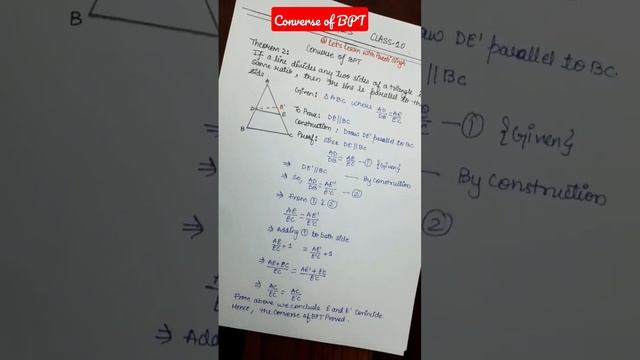 Converse of BPT
CLASS-10
@ Let's Learn with Preeti Singh
Theorem 2: Converse of BPT
If a line divides any two sides of a triangle
same ratio, then the line is parallel to the
side.
Given: △ABC where AD/DB = AE/EC
To Prove: DE||BC
Construction: Draw DE' parallel to BC
Proof: Since DE||BC
AD/DB = AE/EC — ① {Given}
⇒ DE'||BC — By construction
⇒ So, AD/DB = AE'/E'C — ②
⇒ From ① & ②
AE/EC = AE'/E'C
⇒ Adding ① to both side
AE/EC + 1 = AE'/E'C + 1
⇒ AE+EC/EC = AE'+E'C/E'C
⇒ AC/EC = AC/E'C
From above we conclude E and E' Coincide
Hence, the Converse of BPT Proved.
A
D
E'
E
B
C
B
DE' parallel to BC.
||BC
— ① {Given}
— By construction
②
⇒ Add